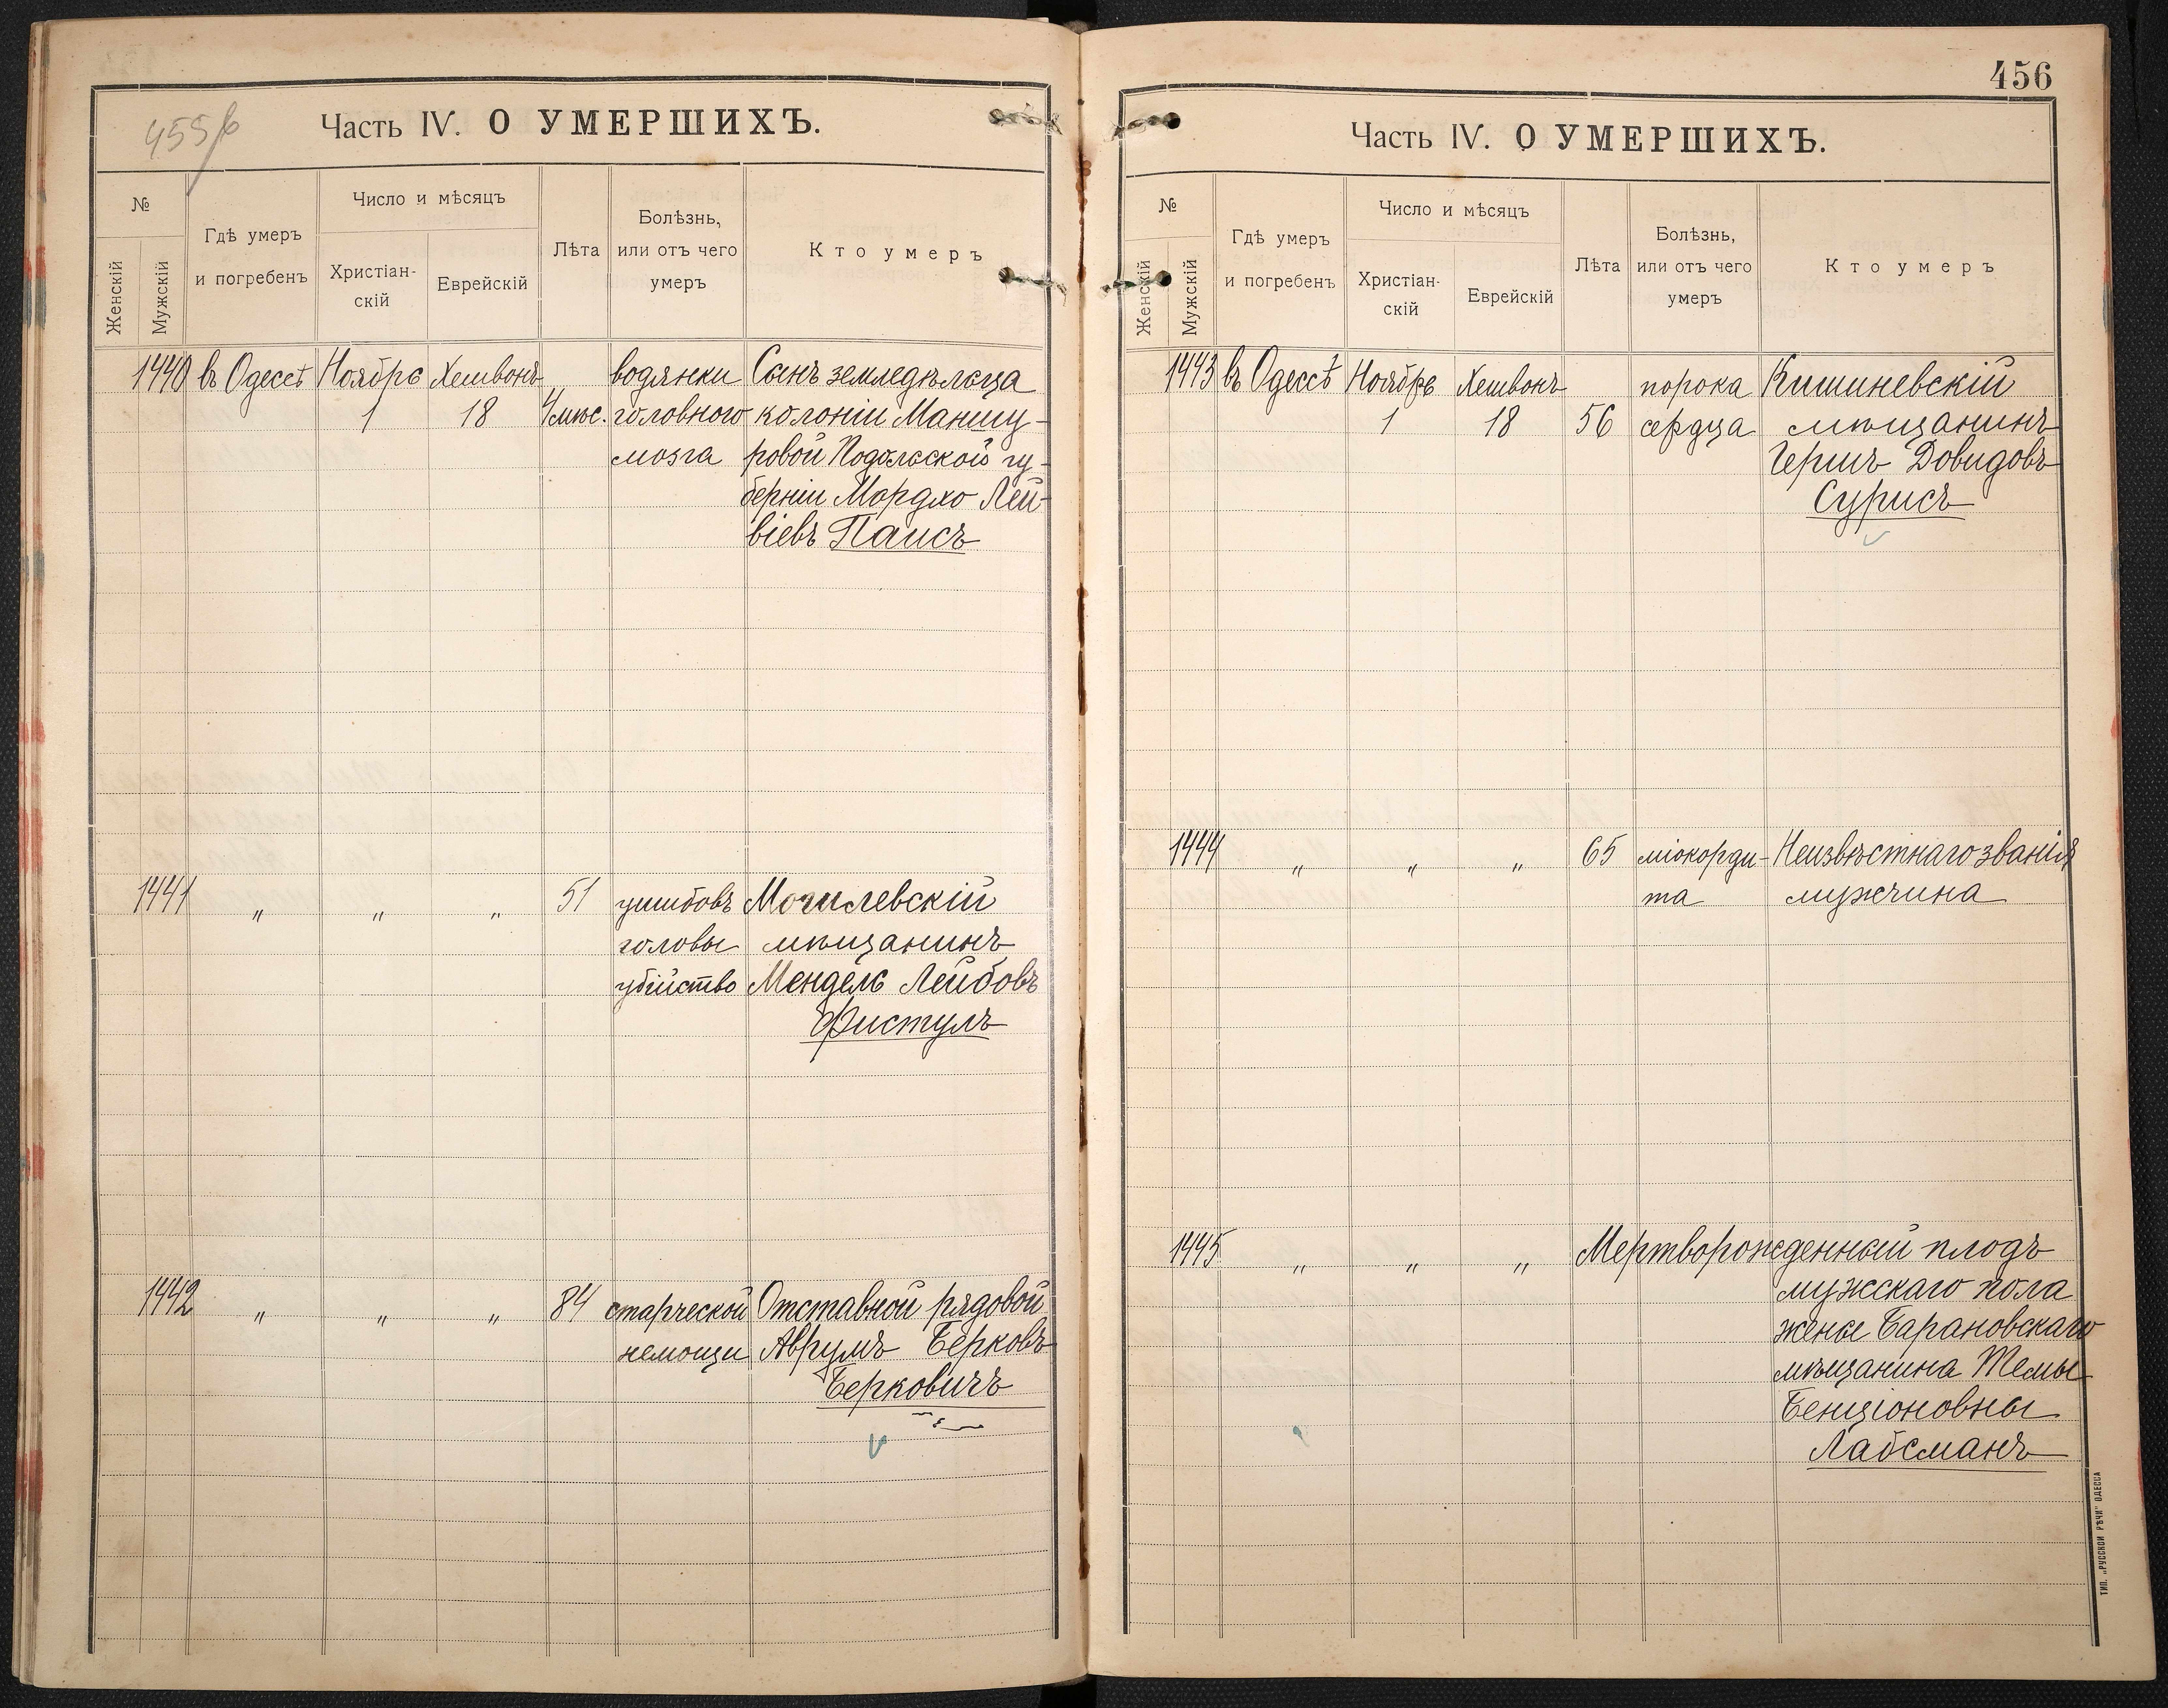 455 б
Часть IV. О УМЕРШИХЪ.
№
Женскій
Мужскій
Гдѣ умеръ
и погребенъ
Число и мѣсяцъ
Христіан-
скій
Еврейскій
Лѣта
Болѣзнь,
или отъ чего
умеръ
Кто умеръ
1440 въ Одессѣ Ноября Хешвонъ водянки Сынъ земледѣльца
1 18 4 мѣс. головного колоніи Маншу-
мозга ровой Подольской гу-
берніи Мордхо Лей-
віевъ Паисъ
1441 „ „ „ 51 ушибовъ Могилевскій
головы мѣщанинъ
убійство Мендель Лейбовъ
Фистулъ
1442 „ „ „ 84 старческой Отставной рядовой
немощи Аврумъ Берковъ
Берковичъ
456
Часть IV. О УМЕРШИХЪ.
№
Женскій
Мужскій
Гдѣ умеръ
и погребенъ
Число и мѣсяцъ
Христіан-
скій
Еврейскій
Лѣта
Болѣзнь,
или отъ чего
умеръ
Кто умеръ
1443 въ Одессѣ Ноябрь Хешвонъ порока Кишиневскій
1 18 56 сердца мѣщанинъ
Гершъ Довидовъ
Сурисъ
1444 „ „ „ 65 міокорди- Неизвѣстнаго званія
та мужчина
1445 „ „ „ Мертворожденный плодъ
мужскаго пола
жены Барановскаго
мѣщанина Темы
Бенціоновны
Лабсманъ
ТИП. „РУССКОЙ РѢЧИ" ОДЕССА